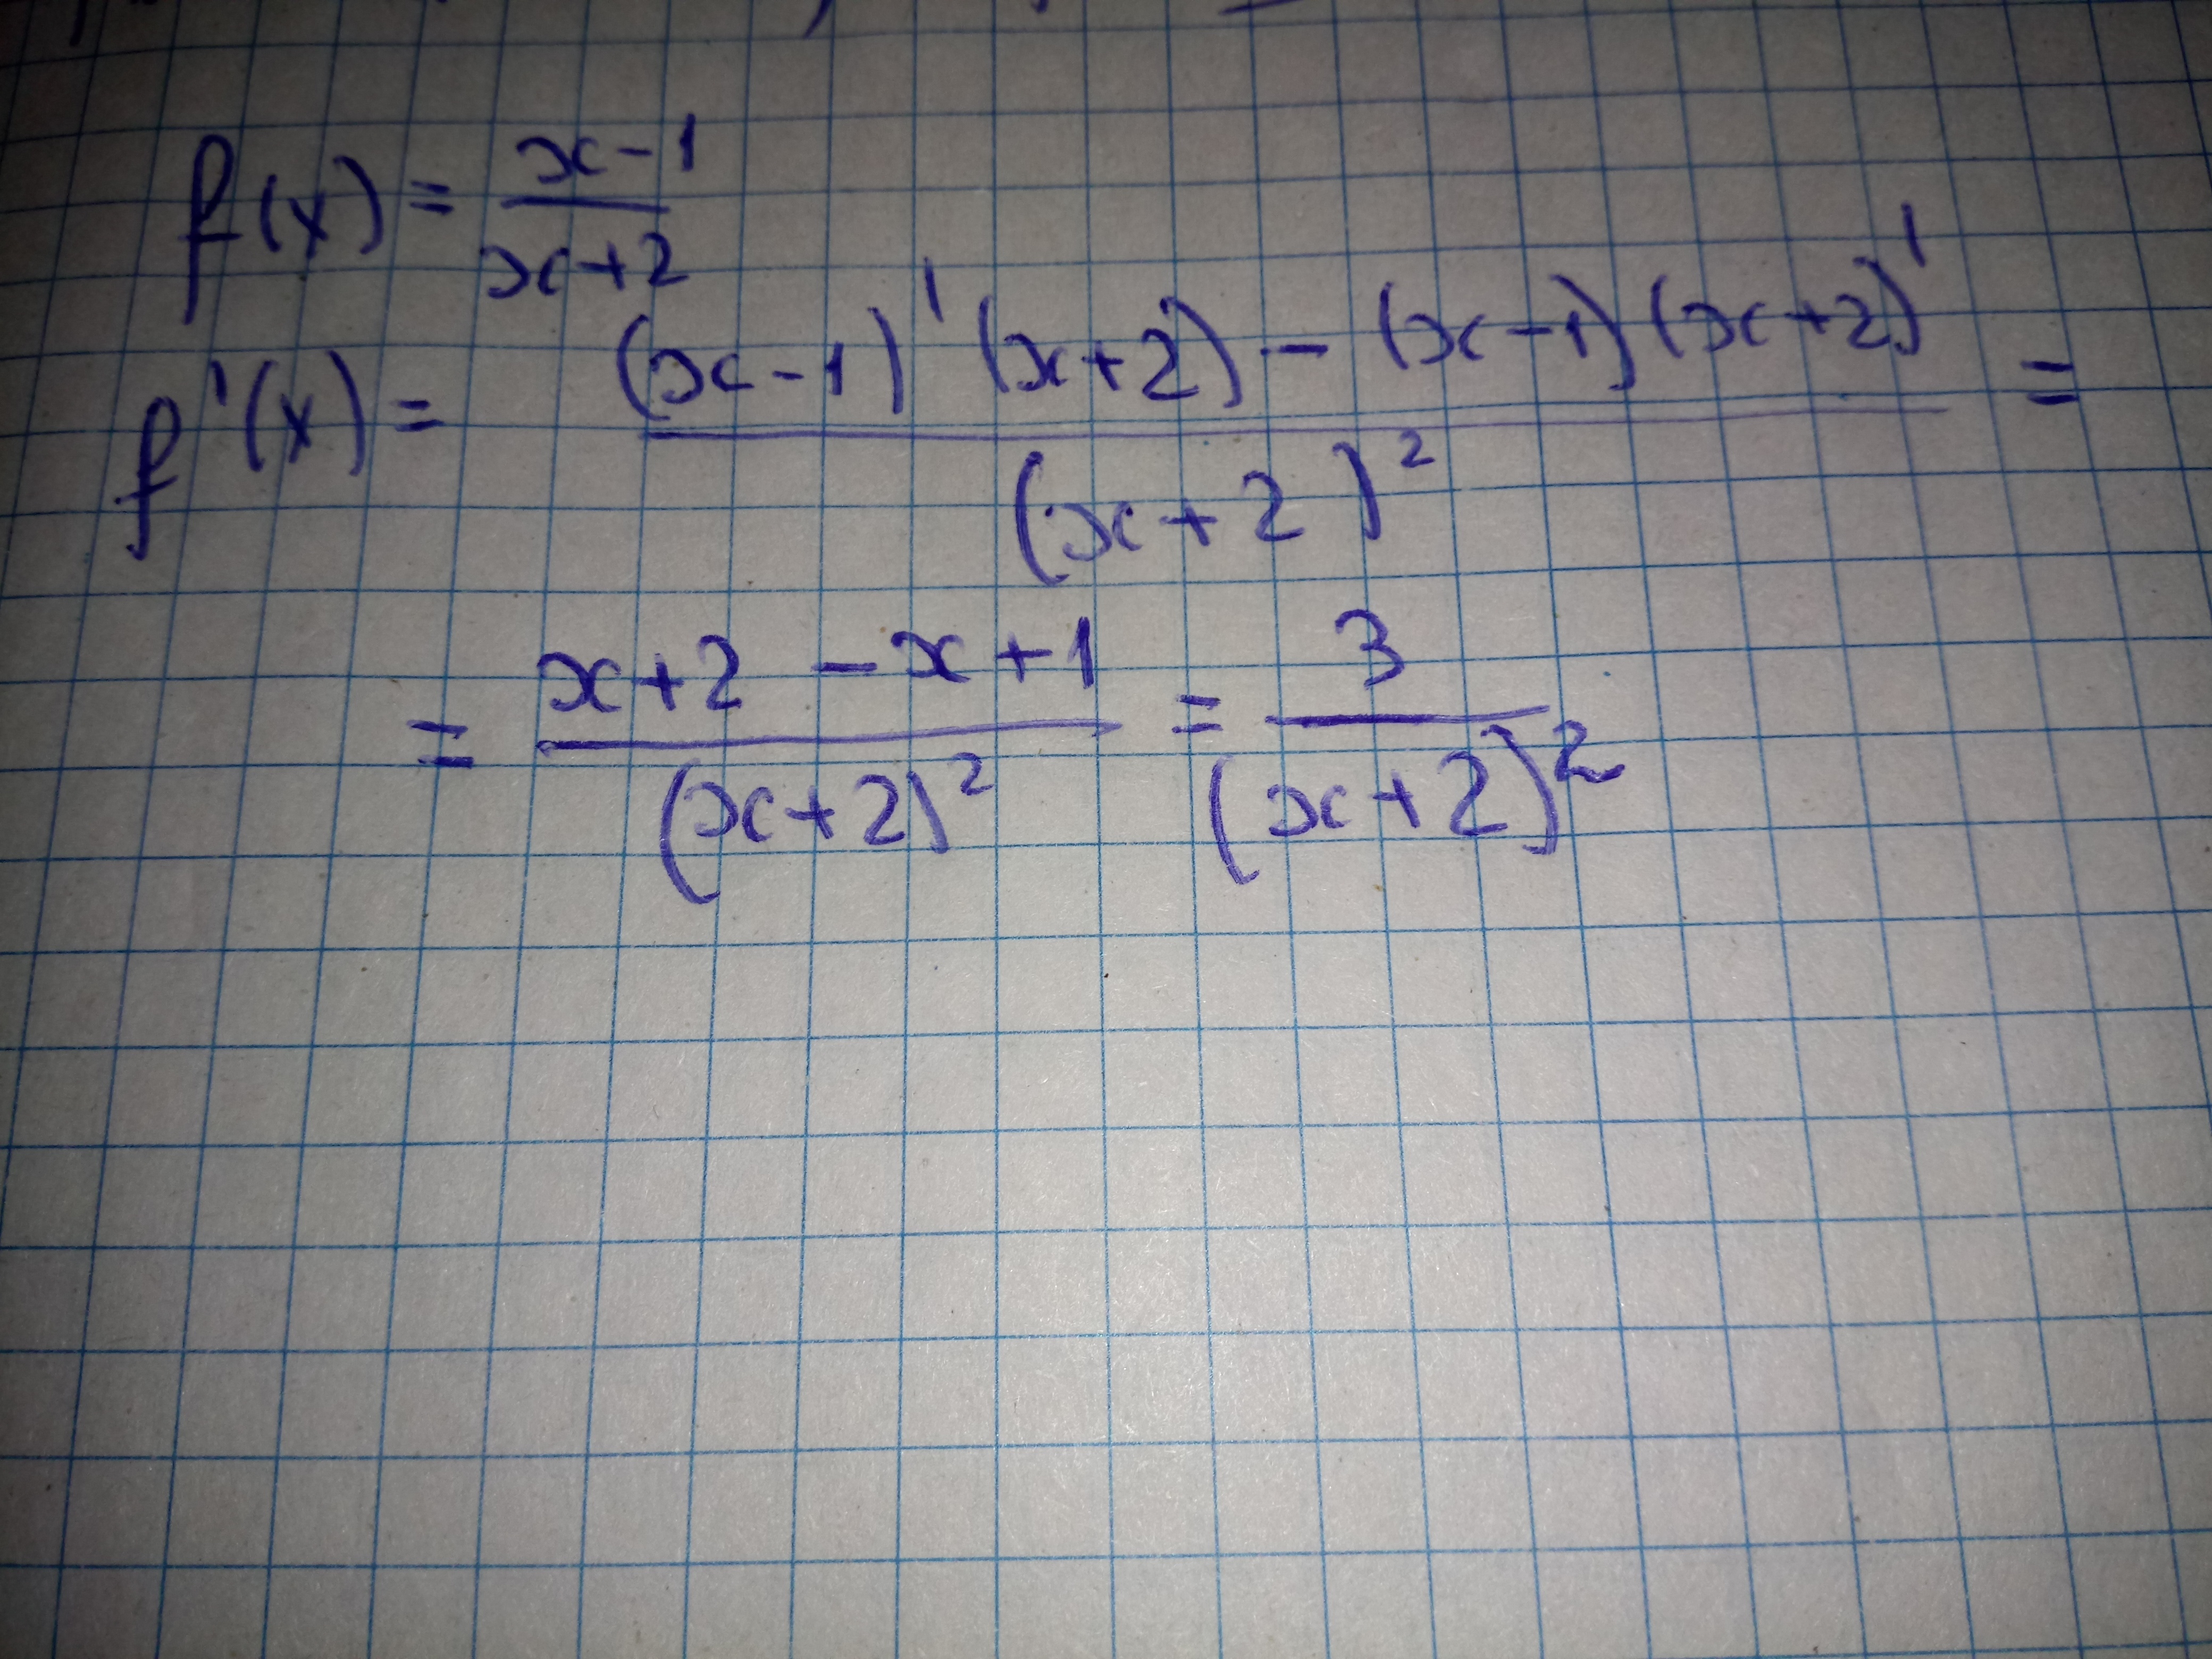 f(x) = \frac{x-1}{x+2}
f'(x) = \frac{(x-1)'(x+2) - (x-1)(x+2)'}{(x+2)^2} =
= \frac{x+2-x+1}{(x+2)^2} = \frac{3}{(x+2)^2}